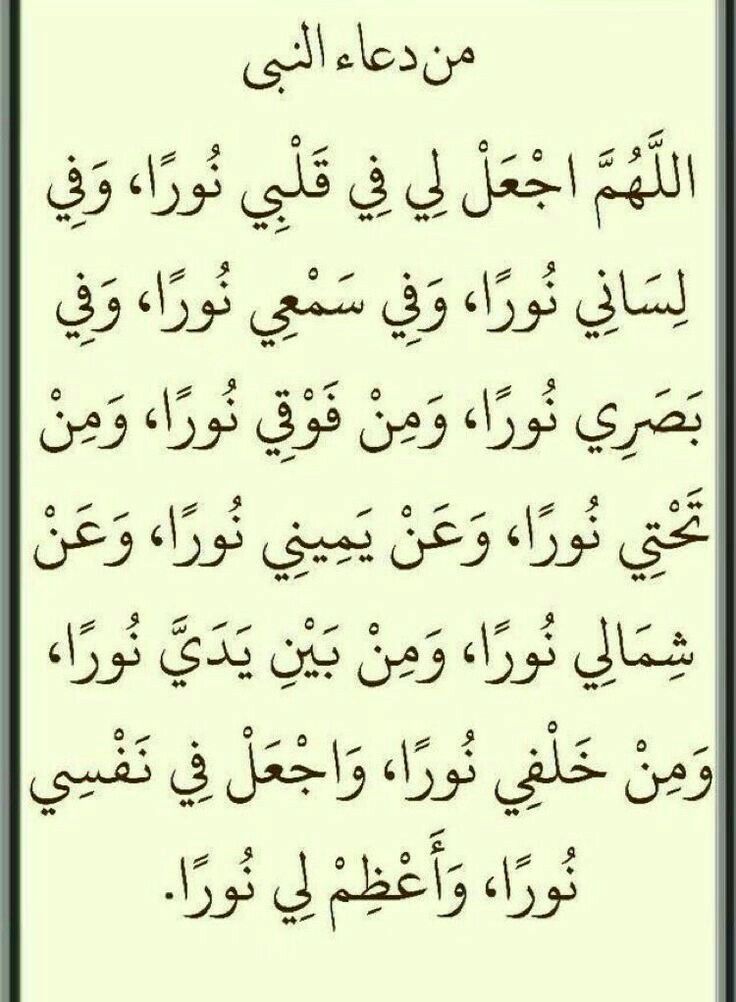 من دعاء النبى
اللَّهُمَّ اجْعَلْ لِي فِي قَلْبِي نُورًا، وَفِي
لِسَانِي نُورًا، وَفِي سَمْعِي نُورًا، وَفِي
بَصَرِي نُورًا، وَمِنْ فَوْقِي نُورًا، وَمِنْ
تَحْتِي نُورًا، وَعَنْ يَمِينِي نُورًا، وَعَنْ
شِمَالِي نُورًا، وَمِنْ بَيْنِ يَدَيَّ نُورًا،
وَمِنْ خَلْفِي نُورًا، وَاجْعَلْ فِي نَفْسِي
نُورًا، وَأَعْظِمْ لِي نُورًا.